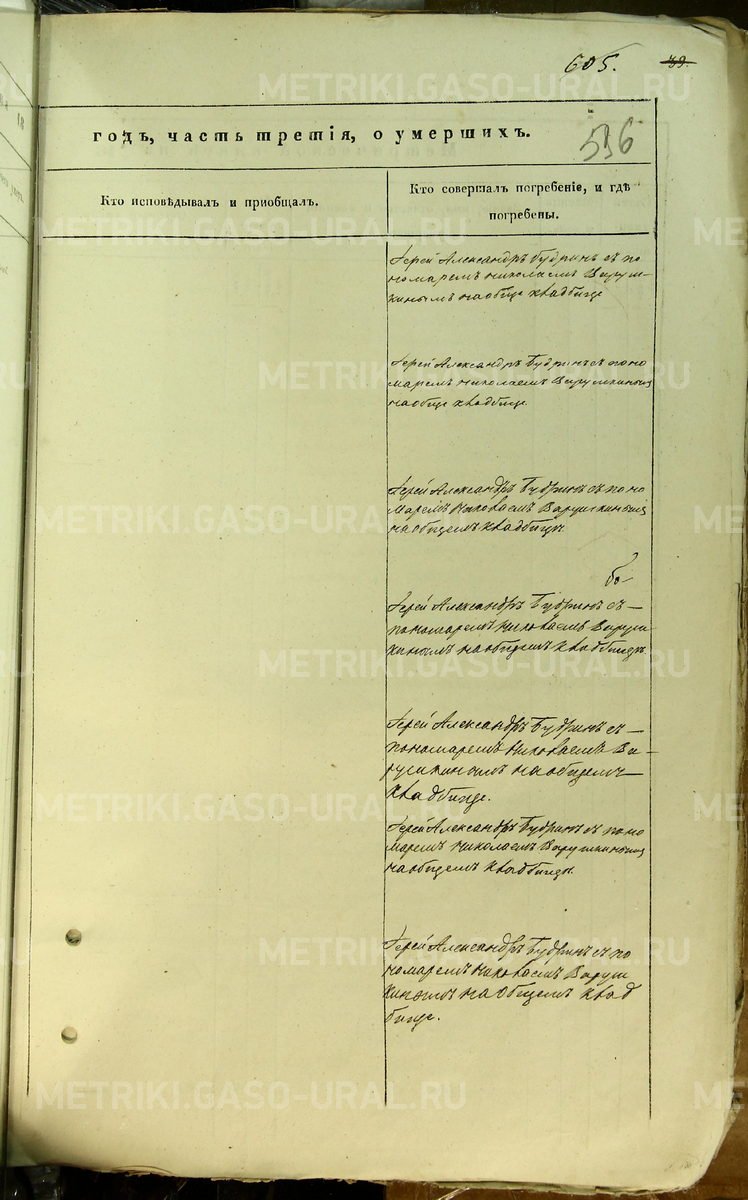 605.
39.
годъ, часть третія, о умершихъ.
536
Кто исповѣдывалъ и пріобщалъ.
Кто совершалъ погребеніе, и гдѣ
погребены.
Іерей Александръ Будринъ съ по
номаремъ Николаемъ Варуш-
кинымъ на обще кладбище
Іерей Александръ Будринъ съ поно
маремъ Николаемъ Варушкинымъ
на обще кладбище.
Іерей Александръ Будринъ съ поно
маремъ Николаемъ Варушкинымъ
на общемъ кладбищѣ.
Іерей Александръ Будринъ съ —
пономаремъ Николаемъ Варуш
кинымъ на общемъ кладбищѣ.
Іерей Александръ Будринъ съ —
пономаремъ Николаемъ Ва-
рушкинымъ на общемъ —
кладбище.
Іерей Александръ Будринъ съ поно
маремъ Николаемъ Варушкинымъ
на общемъ кладбищѣ.
Іерей Александръ Будринъ съ по
номаремъ Николаемъ Варуш
кинымъ на общемъ клад
бище.
METRIKI.GASO-URAL.RU